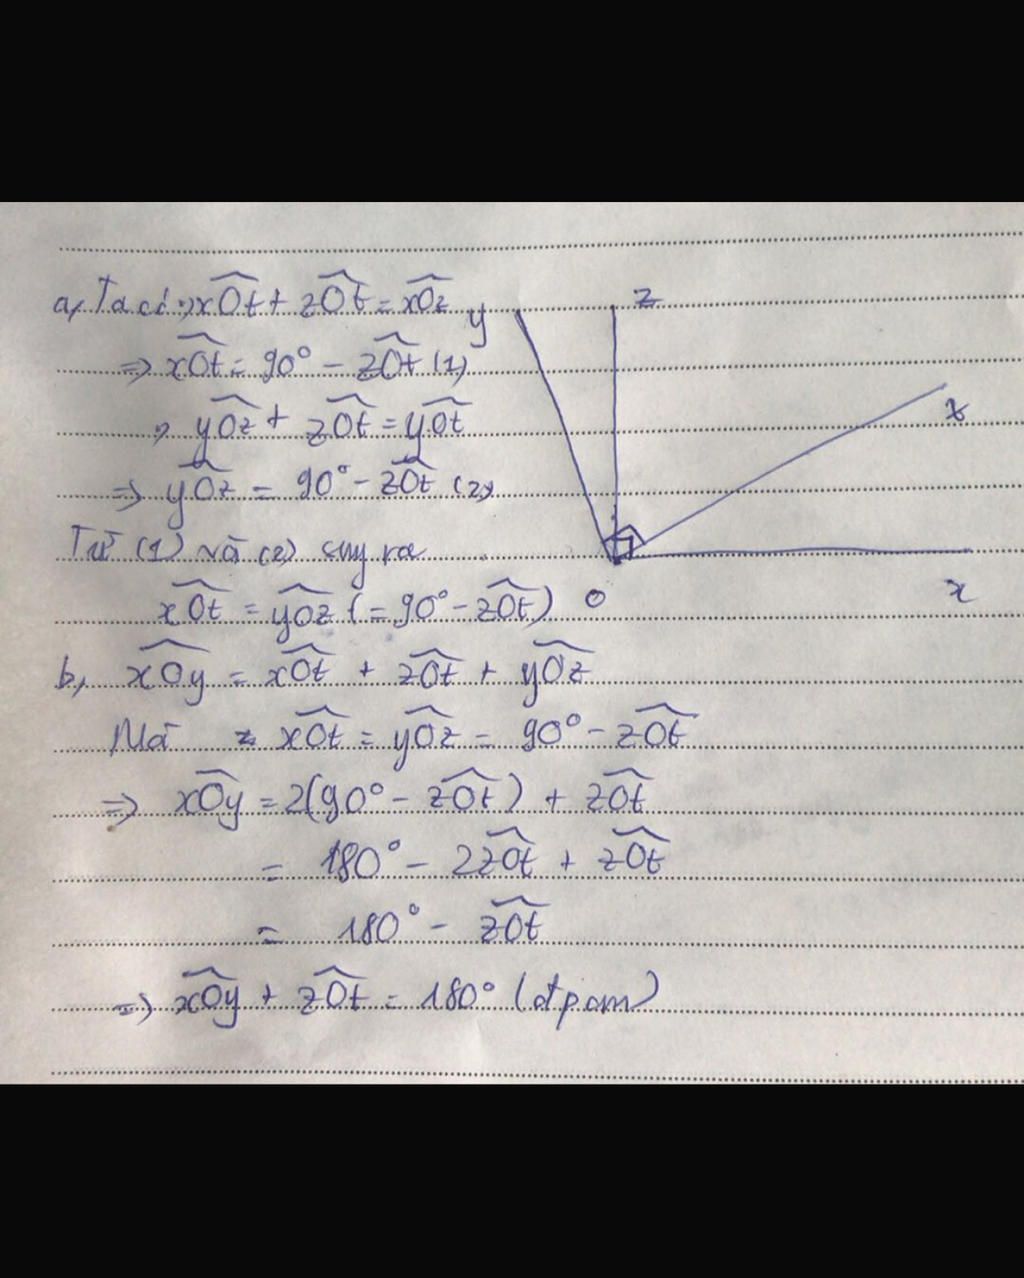 a, Ta có: xOt + zOt = xOz
=> xOt = 90° - zOt (1)
yOz + zOt = yOt
=> yOz = 90° - zOt (2)
Từ (1) và (2) suy ra
xOt = yOz (= 90° - zOt)
b, xOy = xOt + zOt + yOz
Mà xOt = yOz = 90° - zOt
=> xOy = 2(90° - zOt) + zOt
= 180° - 2zOt + zOt
= 180° - zOt
=> xOy + zOt = 180° (đpcm)
y
z
t
x
O